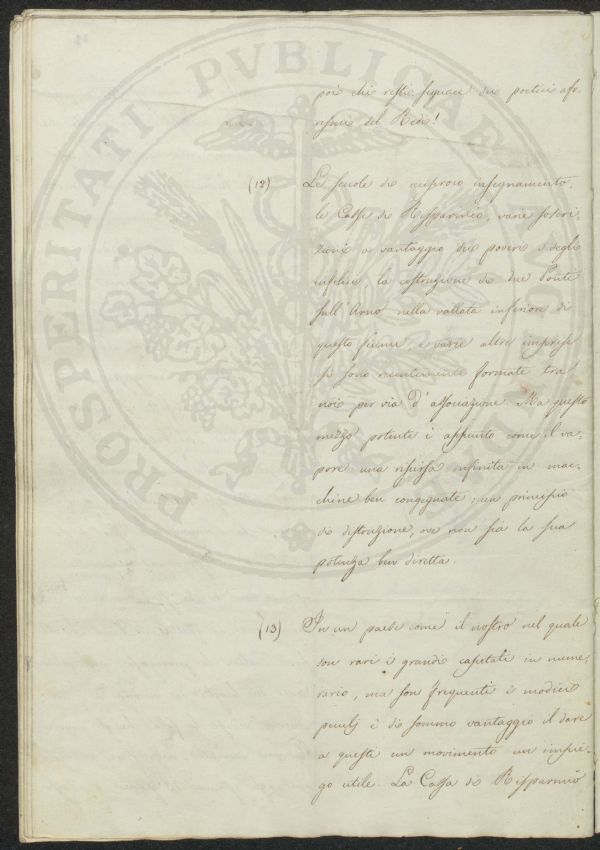 poi chi resti seguace dei poetici afo-
rismi del Redi!
(12) Le scuole di reciproco insegnamento,
le Casse di Risparmio, varie soscri-
zioni a vantaggio dei poveri e degli
infelici, la costruzione di due Ponti
sull'Arno nella vallata inferiore di
questo fiume, e varie altre imprese
si sono recentemente formate tra
noi per via d'associazione. Ma questo
mezzo potente è appunto come il va-
pore una risorsa infinita in mac-
chine ben congegnate; un principio
di distruzione, ove non sia la sua
potenza ben diretta.
(13) In un paese come il nostro nel quale
son rari i grandi capitali in nume-
rario, ma son frequenti i modici
è di sommo vantaggio il dare
a questi un movimento un impie-
go utile. La Cassa di Risparmio
PROSPERITATI PVBLICAE